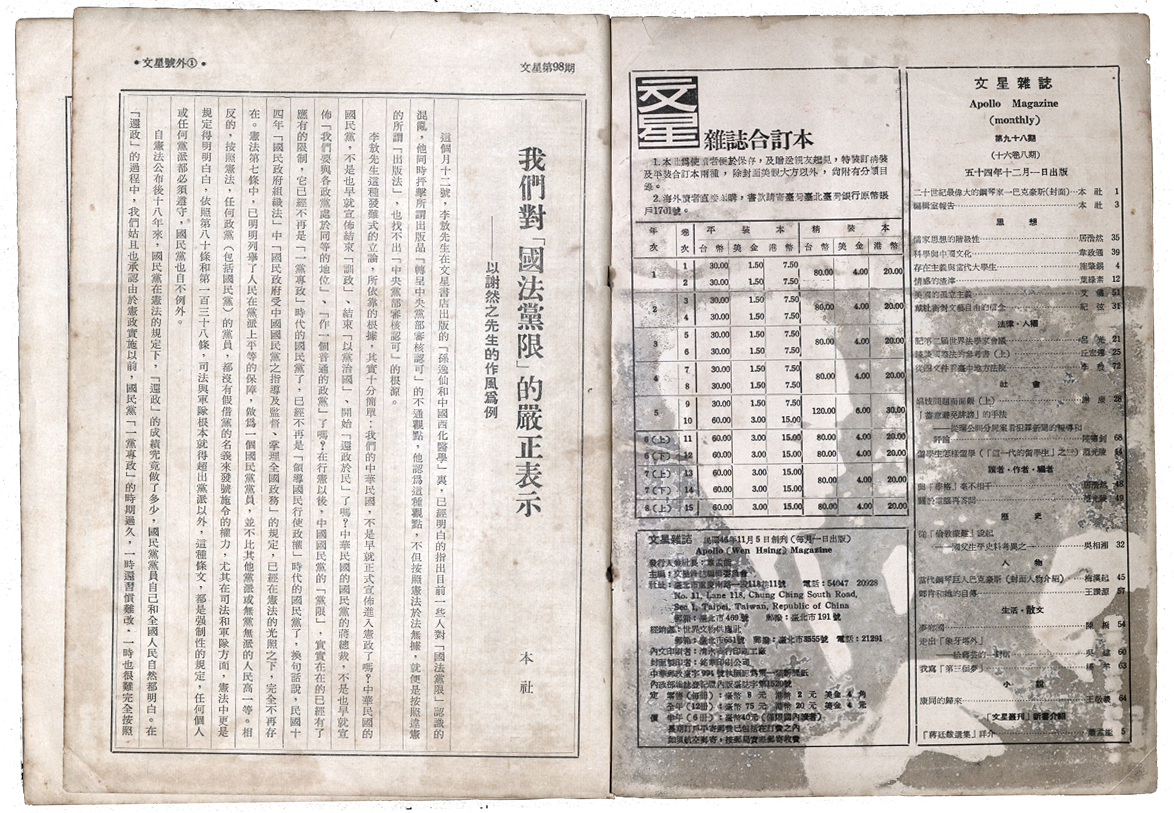 •文星號外①•
文星第98期
我們對「國法黨限」的嚴正表示
——以謝然之先生的作風為例
本社
這個月十二號，李敖先生在文星書店出版的「孫逸仙和中國西化醫學」裏，已經明白的指出目前一些人對「國法黨限」認識的
混亂，他同時抨擊所謂出版品「轉呈中央黨部審核認可」的不通觀點，他認爲這種觀點，不但按照憲法於法無據，就便是按照違憲
的所謂「出版法」，也找不出「中央黨部審核認可」的根源。
李敖先生這種發難式的立論，所依靠的根據，其實十分簡單：我們的中華民國，不是早就正式宣佈進入憲政了嗎？中華民國的
國民黨，不是也早就宣佈結束「訓政」、結束「以黨治國」、開始「還政於民」了嗎？中華民國的國民黨的蔣總裁，不是也早就宣
佈「我們要與各政黨處於同等的地位」、「作一個普通的政黨」了嗎？在行憲以後，中國國民黨的「黨限」，實實在在的已經有了
應有的限制，它已經不再是「一黨專政」時代的國民黨了，已經不再是「領導國民行使政權」時代的國民黨了，換句話說，民國十
四年「國民政府組織法」中「國民政府受中國國民黨之指導及監督、掌理全國政務」的規定，已經在憲法的光照之下，完全不再存
在。憲法第七條中，已明明列舉了人民在黨派上平等的保障，做爲一個國民黨黨員，並不比其他黨派或無黨無派的人民高一等。相
反的，按照憲法，任何政黨（包括國民黨）的黨員，都沒有假借黨的名義來發號施令的權力，尤其在司法和軍隊方面，憲法中更是
規定得明明白白，依照第八十條和第一百三十八條，司法與軍隊根本就得超出黨派以外，這種條文，都是強制性的規定，任何個人
或任何黨派都必須遵守，國民黨也自不例外。
自憲法公布後十八年來，國民黨在憲法的規定下，「還政」的成績究竟做了多少，國民黨黨員自己和全國人民自然都明白。在
「還政」的過程中，我們姑且也承認由於憲政實施以前，國民黨「一黨專政」的時期過久，一時還習慣難改，一時也很難完全按照
文星
雜誌合訂本
1. 本社爲使讀者便於保存，及贈送親友起見，特裝訂精裝
及平裝合訂本兩種，除封面美觀大方以外，尚附有分類目
錄。
2. 海外讀者直接本購，書款請寄臺灣臺北臺灣銀行原幣賬
戶1701號。
年次 卷次 平裝本 精裝本
台幣 美金 港幣 台幣 美金 港幣
1 1 30.00 1.50 7.50 80.00 4.00 20.00
2 30.00 1.50 7.50
3 30.00 1.50 7.50 80.00 4.00 20.00
4 30.00 1.50 7.50
5 30.00 1.50 7.50 80.00 4.00 20.00
6 30.00 1.50 7.50
7 30.00 1.50 7.50 80.00 4.00 20.00
8 30.00 1.50 7.50
5 9 30.00 1.50 7.50 120.00 6.00 30.00
10 60.00 3.00 15.00
6(上) 11 60.00 3.00 15.00 80.00 4.00 20.00
6(下) 12 60.00 3.00 15.00 80.00 4.00 20.00
7(上) 13 60.00 3.00 15.00 80.00 4.00 20.00
7(下) 14 60.00 3.00 15.00 80.00 4.00 20.00
8(上) 15 60.00 3.00 15.00 80.00 4.00 20.00
文星雜誌 民國46年11月5日創刊（每月一日出版）
Apollo (Wen Hsing) Magazine
發行人兼社長：
主編：文星雜誌編輯委員會
社址：臺北市重慶南路一段118巷11號 電話：54047 20928
No. 11, Lane 118, Chung Ching South Road,
Sec 1, Taipei, Taiwan, Republic of China
郵箱：臺北市469號 郵撥：臺北市191號
經銷處：世界文物供應社
郵箱：臺北市651號 郵撥：臺北市3555號 電話：21291
內文印刷者：清水商行印刷工廠
封面製印者：裕華印刷公司
中華郵政臺字994號執照登記爲第一類新聞紙
定 零售（每冊）：臺幣 8 元 港幣 2 元 美金 4 角
全年（12冊）：臺幣 75元 港幣 20 元 美金 4 元
價 半年（6冊）：臺幣40元（僅限國內讀者）
長期訂戶平寄郵費已包括在訂費之內
如須航空郵寄，按郵局實際郵寄收費
文星雜誌
Apollo Magazine
(monthly)
第九十八期
（十六卷八期）
五十四年十二月一日出版
二十世紀最偉大的鋼琴家—巴克豪斯(封面)…本社 1
編輯室報告 本社 3
思想
儒家思想的階級性 居浩然 35
科學與中國文化 韋政通 39
存在主義與當代大學生 陳肇錫 4
情感的渣滓 葉綠素 12
美洲的孤立主義 文儀 51
紀弦 31
法律·人權
記第二屆世界法學家會議 呂光 21
談談英憲法的參考書（上） 丘宏達 25
從四文件看臺中地方法院 李敖 72
社會
娼妓問題面面觀（上） 28
「蓄意避免誹謗」的手法
評論 68
留學生怎樣留學（「這一代的留學生」之三）
讀者·作者·編者
與「摩格」毫不相干 居浩然 48
關於電腦再答問 范光陵 49
歷史
從「倫敦蒙難」說起
——國父生平史料考異之一 吳相湘 32
人物
當代鋼琴巨人巴克豪斯（封面人物介紹） 梅漢起 45
鄧肯和她的自傳 王潔 57
生活·散文
夢鄉園 54
走出「象牙塔外」
60
我寫「第三個夢」 63
小說
康同的歸來 王敬羲 64
「文星叢刊」新書介紹
「蔣廷黻選集」評介 蕭孟能 5